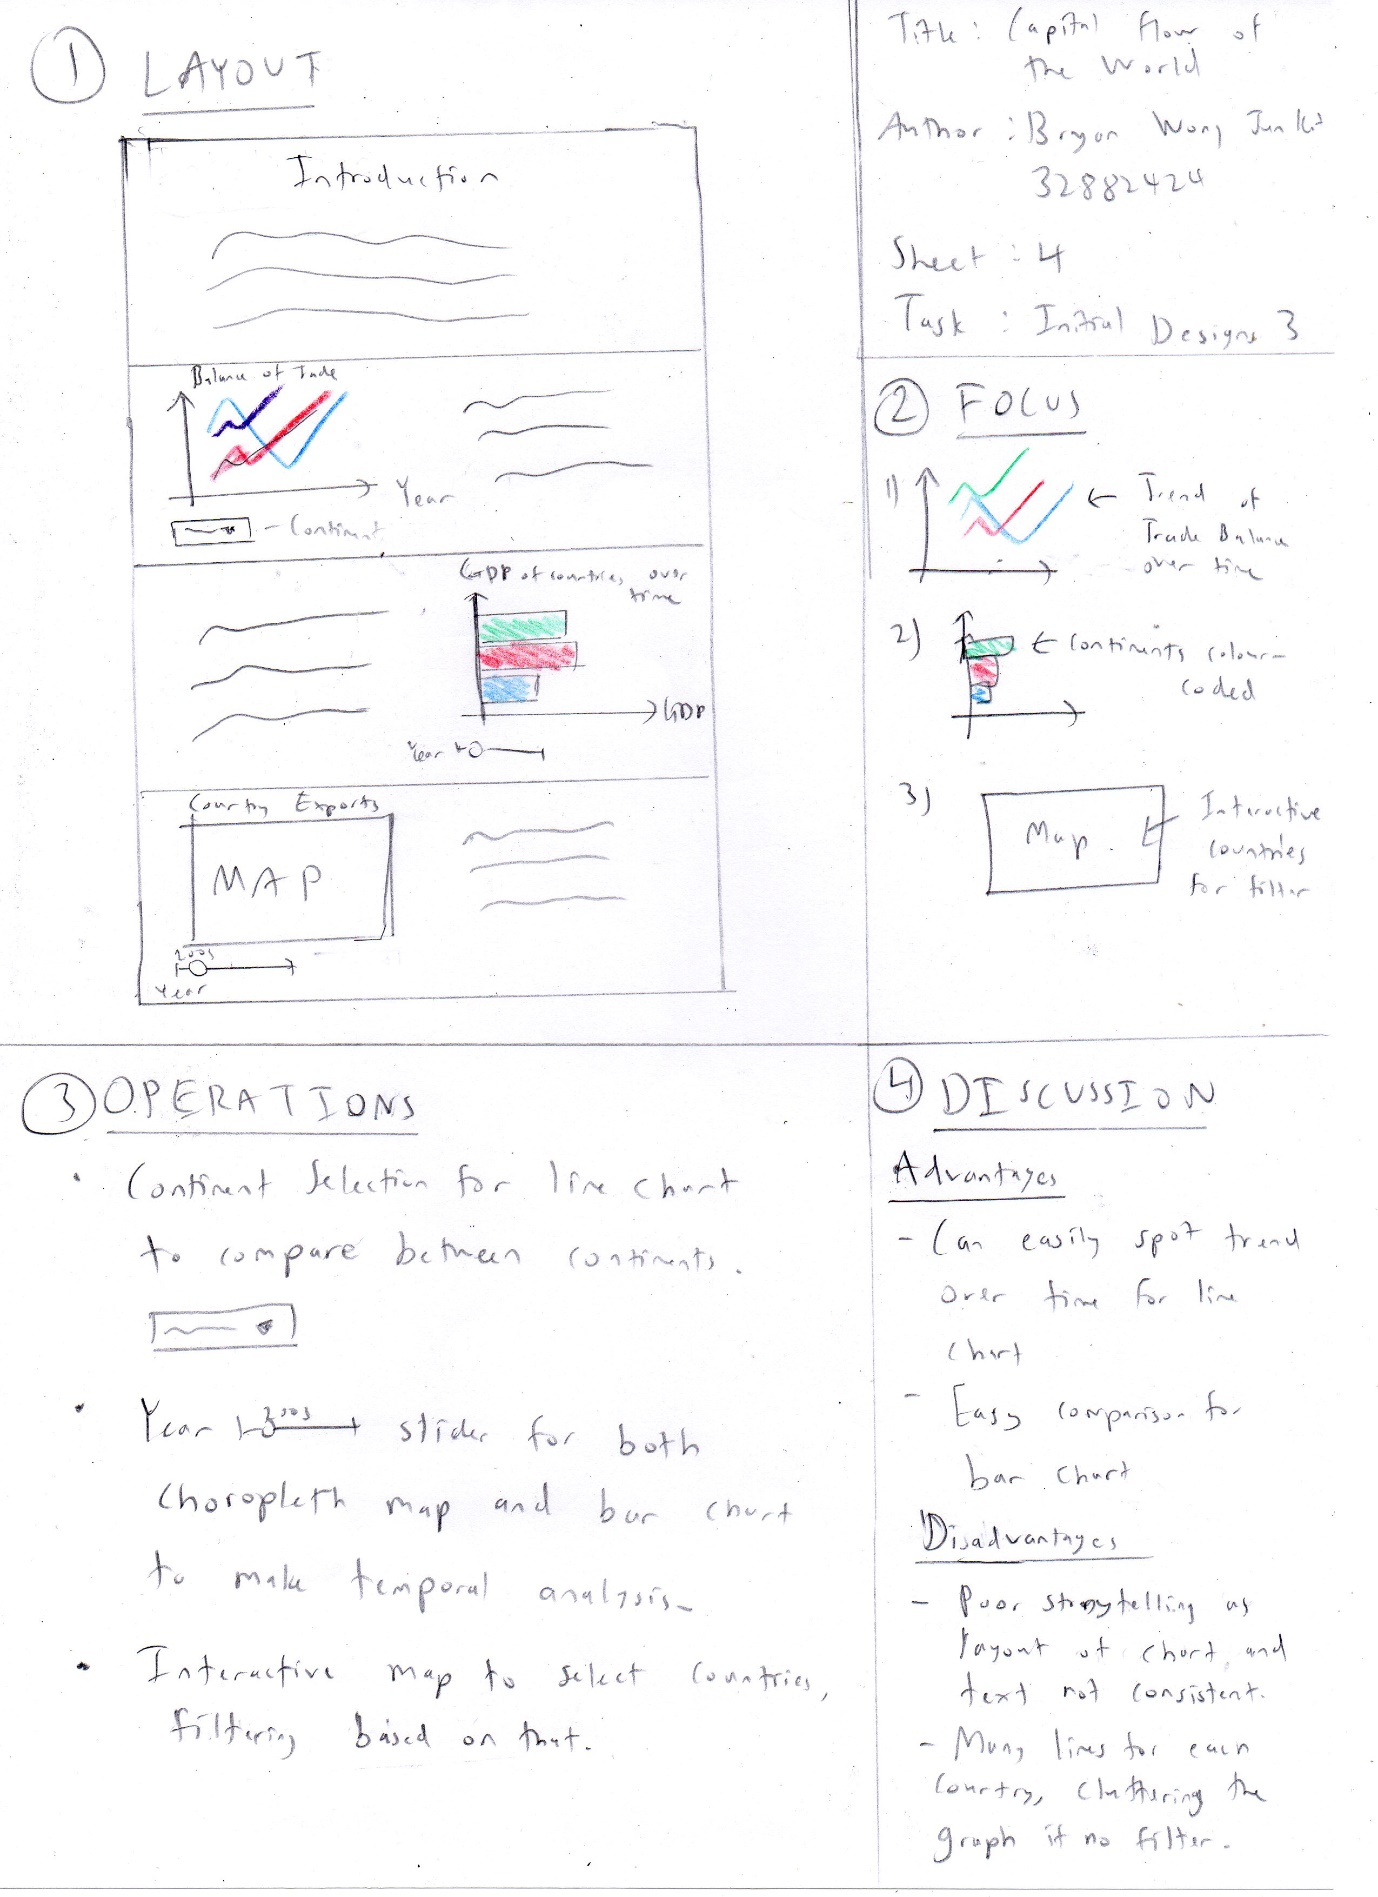 ① LAYOUT
Introduction
Balance of Trade
Year
- Continent
GDP of countries over
time
GDP
Year
Country Exports
MAP
2005
Year
Title : Capital flow of
the World
Author : Bryan Wong Jun Kit
32882424
Sheet : 4
Task : Initial Designs 3
② FOCUS
1)
Trend of
Trade Balance
over time
2)
continents colour-
coded
3)
Map
Interactive
countries
for filter
③ OPERATIONS
• Continent Selection for line chart
to compare between continents.
• Year 2005 slider for both
choropleth map and bar chart
to make temporal analysis.
• Interactive map to select countries,
filtering based on that.
④ DISCUSSION
Advantages
- Can easily spot trend
over time for line
chart
- Easy comparison for
bar chart
Disadvantages
- Poor storytelling as
layout of chart and
text not consistent.
- Many lines for each
country, cluttering the
graph if no filter.